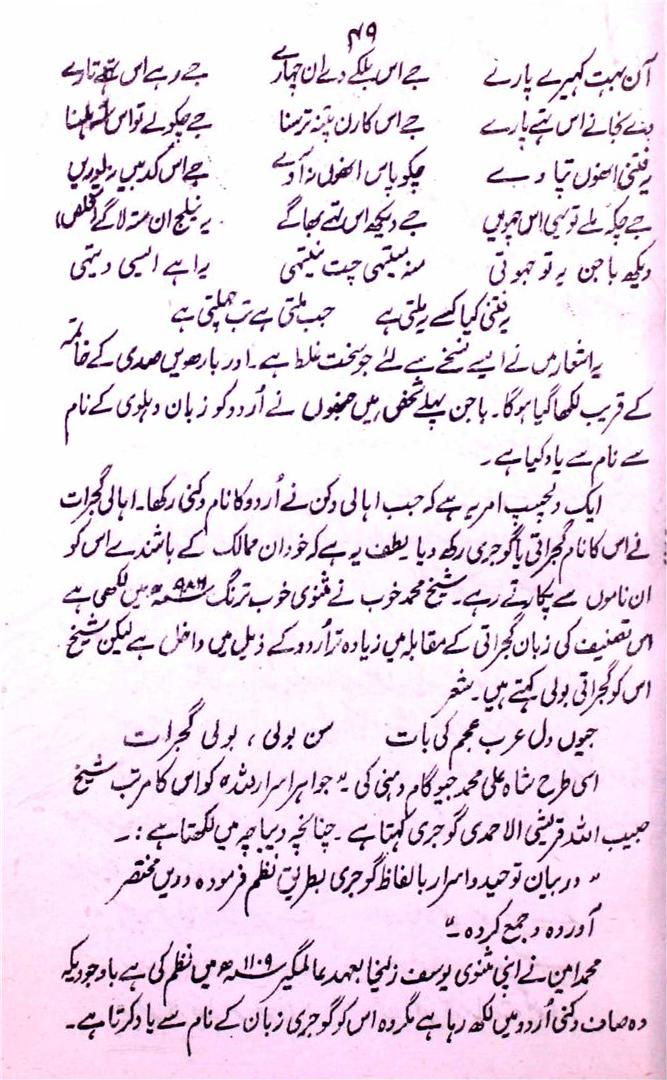 ۴۹
آن بہت کہیرے پارے جے اس بلکے دے ان چہارے جے رہے اس تھے تارے
بدے کجانے اس تھے پارے جے اس کارن پتنہ ترسنا جے چکولے تو اس
یہ فتنی انھوں تپاوے چکو پاس انھوں نہ آوے جے اس کد ہیں نہ
جے چکہ ملے تو سہی اس جیویں جے دیکھ اس تھے بھاگے یہ نیلج ان سنہ لاگے (مخلص)
دیکھ باجن یہ تو جھوتی منہ میتھی چت یہ اہے ایسی دیتی
یہ فتنی کیا کسے یہ ملتی ہے جب ملتی ہے تب چھلتی ہے
یہ اشعار میں نے ایسے نسخے سے لئے جو سخت غلط ہے۔ اور بارھویں صدی کے خاتمہ
کے قریب لکھا گیا ہوگا۔ باجن پہلے شخص ہیں جنھوں نے اُردو کو زبان دہلوی کے نام
سے نام سے یاد کیا ہے۔
ایک دلچسپ امر یہ ہے کہ جب اہالی دکن نے اُردو کا نام دکنی رکھا۔ اہالی گجرات
نے اس کا نام گجراتی یا گوجری رکھ دیا۔ لطف یہ ہے کہ خود ان ممالک کے باشندے اس کو
ان ناموں سے پکارتے رہے۔ شیخ محمد خوب نے مثنوی خوب ترنگ ۹۸۶ھ میں لکھی ہے
اس تصنیف کی زبان گجراتی کے مقابلہ میں زیادہ تر اُردو کے ذیل میں داخل ہے لیکن شیخ
اس کو گجراتی بولی کہتے ہیں۔ شعر
جیوں دل عرب عجم کی بات سن بولی، بولی گجرات
اسی طرح شاہ علی محمد جیو گام دہنی کی "جواہر اسرار اللہ" کو اس کا مرتب شیخ
حبیب اللہ قریشی الاحمدی گوجری کہتا ہے۔ چنانچہ دیباچہ میں لکھتا ہے:۔
"دربیان توحید و اسرار بالفاظ گوجری بطریق نظم فرمودہ دریں مختصر
آوردہ و جمع کردہ۔"
محمد امین نے اپنی مثنوی یوسف زلیخا بعہد عالمگیر ۱۱۰۹ھ میں نظم کی ہے باوجودیکہ
وہ صاف دکنی اُردو میں لکھ رہا ہے مگر وہ اس کو گوجری زبان کے نام سے یاد کرتا ہے۔